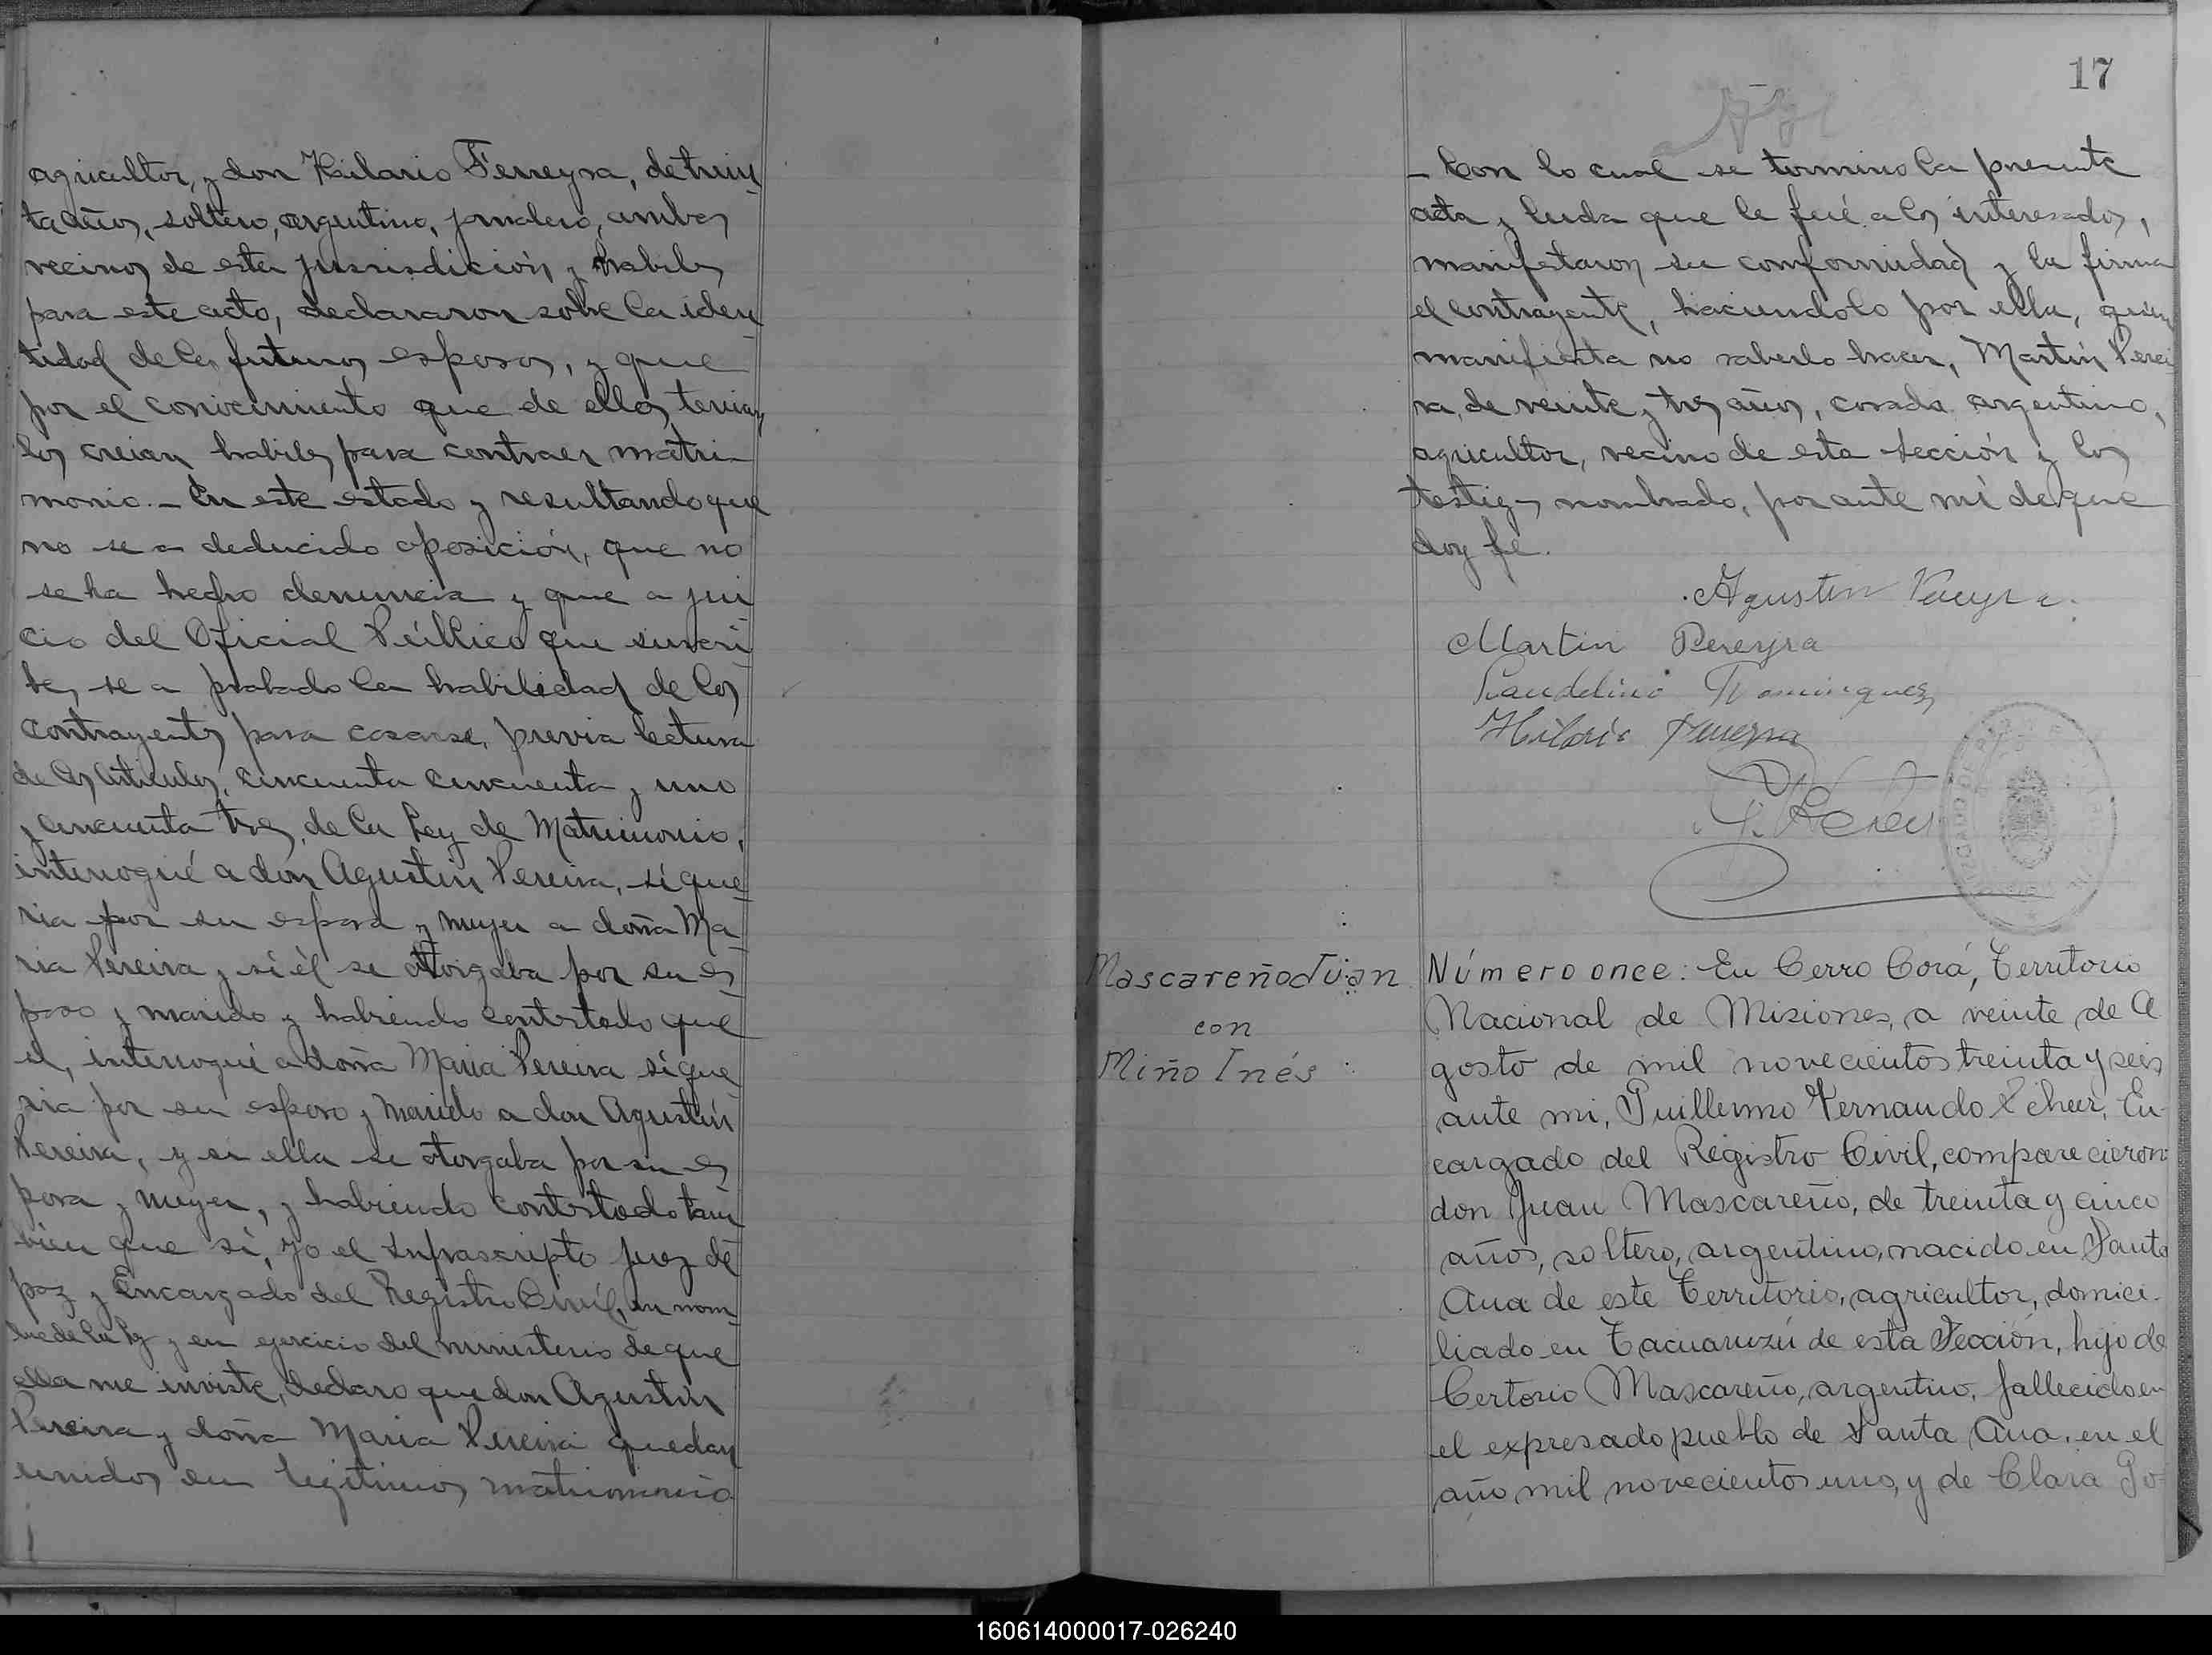 agricultor, y don Hilario Ferreyra, de trein
ta años, soltero, argentino, jornalero, ambos
vecinos de esta jurisdición y habiles
para este acto, declararon sobre la iden
tidad de los futuros esposos, y que
por el conocimiento que de ellos tenian
los creian habiles para contraer matri
monio. – En este estado y resultando que
no se a deducido oposición, que no
se ha hecho denuncia y que a jui
cio del Oficial Público que suscri
be, se a probado la habilidad de los
contrayentes para casarse, previa lectura
de los articulos, cincuenta cincuenta y uno
y cincuenta tres de la Ley de Matrimonio,
interrogué a don Agustin Pereira, si que
ria por su esposa y mujer a doña Ma
ria Pereira y si él se otorgaba por su es
poso y marido y habiendo contestado que
si, interrogué a doña Maria Pereira si que
ria por su esposo y marido a don Agustín
Pereira, y si ella se otorgaba por su es
posa y mujer, y habiendo contestado tam
bien que si, yo el infrascripto Juez de
paz y Encargado del Registro Civil, en nom
bre de la ley y en ejercicio del ministerio de que
ella me inviste, declaro que don Agustín
Pereira y doña Maria Pereira quedan
unidos en legitimo matrimonio
17
– Con lo cual se termino la presente
acta y leida que le fué a los interesados,
manifestaron su comformidad y la firma
el contrayente, haciendolo por ella, quien
manifiesta no saberlo hacer, Martin Perei
ra, de veinte y tres años, casado argentino,
agricultor, vecino de esta sección y los
testigos nombrado, por ante mí de que
doy fe.
Agustin
Martin Pereyra
Dominguez
Hilario
Mascareño Juan
con
Miño Inés
Número once: En Cerro Corá, Territorio
Nacional de Misiones, a veinte de A
gosto de mil novecientos treinta y seis
ante mi, Guillermo Fernando Scheer, En
cargado del Registro Civil, comparecieron
don Juan Mascareño, de treinta y cinco
años, soltero, argentino, nacido en Santa
Ana de este Territorio, agricultor, domici
liado en Tacuaruzú de esta Sección, hijo de
Certorio Mascareño, argentino, fallecido en
el expresado pueblo de Santa Ana, en el
año mil novecientos uno, y de Clara Go
160614000017-026240